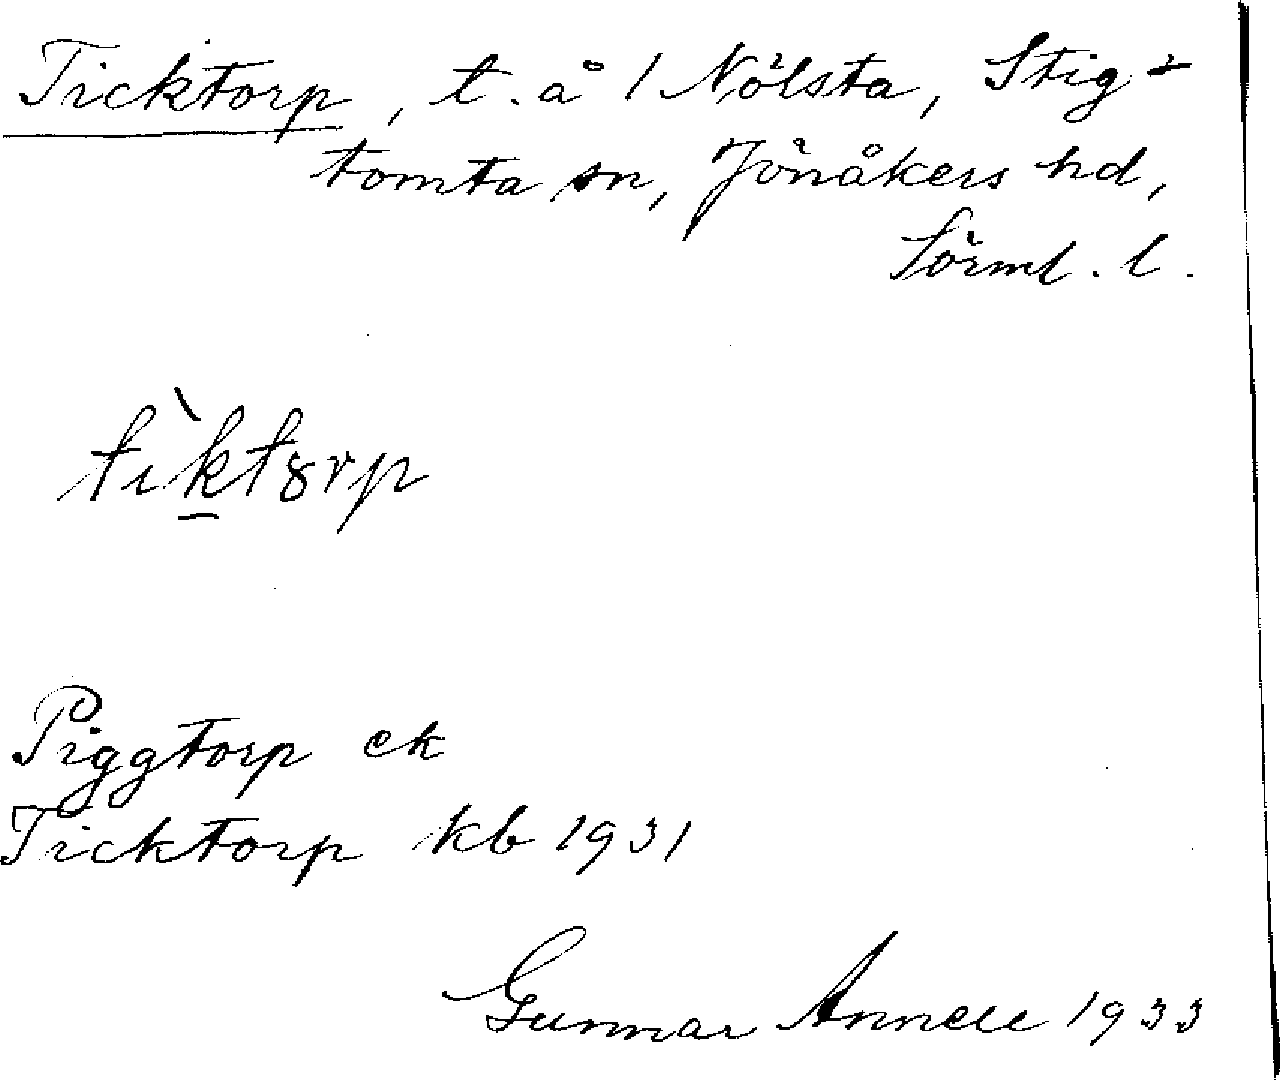 Ticktorp, t. å 1 Nölsta, Stig-
tomta sn, Jönåkers hd,
Sörml. l.
tìktȣrp
Piggtorp ek
Ticktorp kb 1931
Gunnar Annell 1933